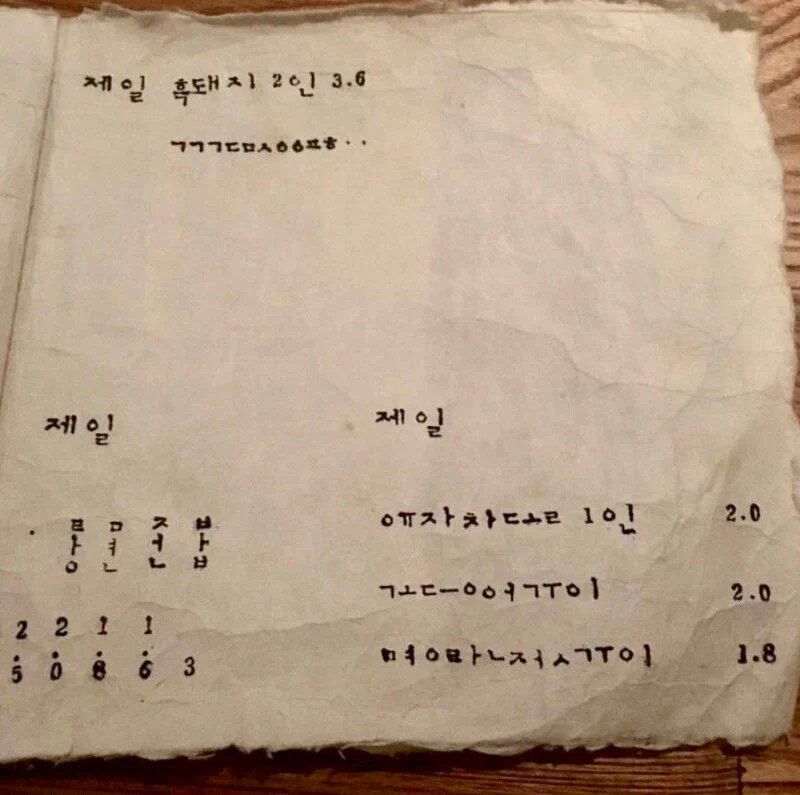 제일 흑돼지 2인 3.6
제일
면 전 밥
2 2 1 1
5 0 8 6 3
제일
ㅇㅠ자차ㄷㅗㄹ 1인 2.0
ㄱㅗㄷㅡㅇㅇㅓㄱㅜㅇㅣ 2.0
ㅁㅕㅇㄹㅏㄴㅈㅓㅅㄱㅜㅇㅣ 1.8